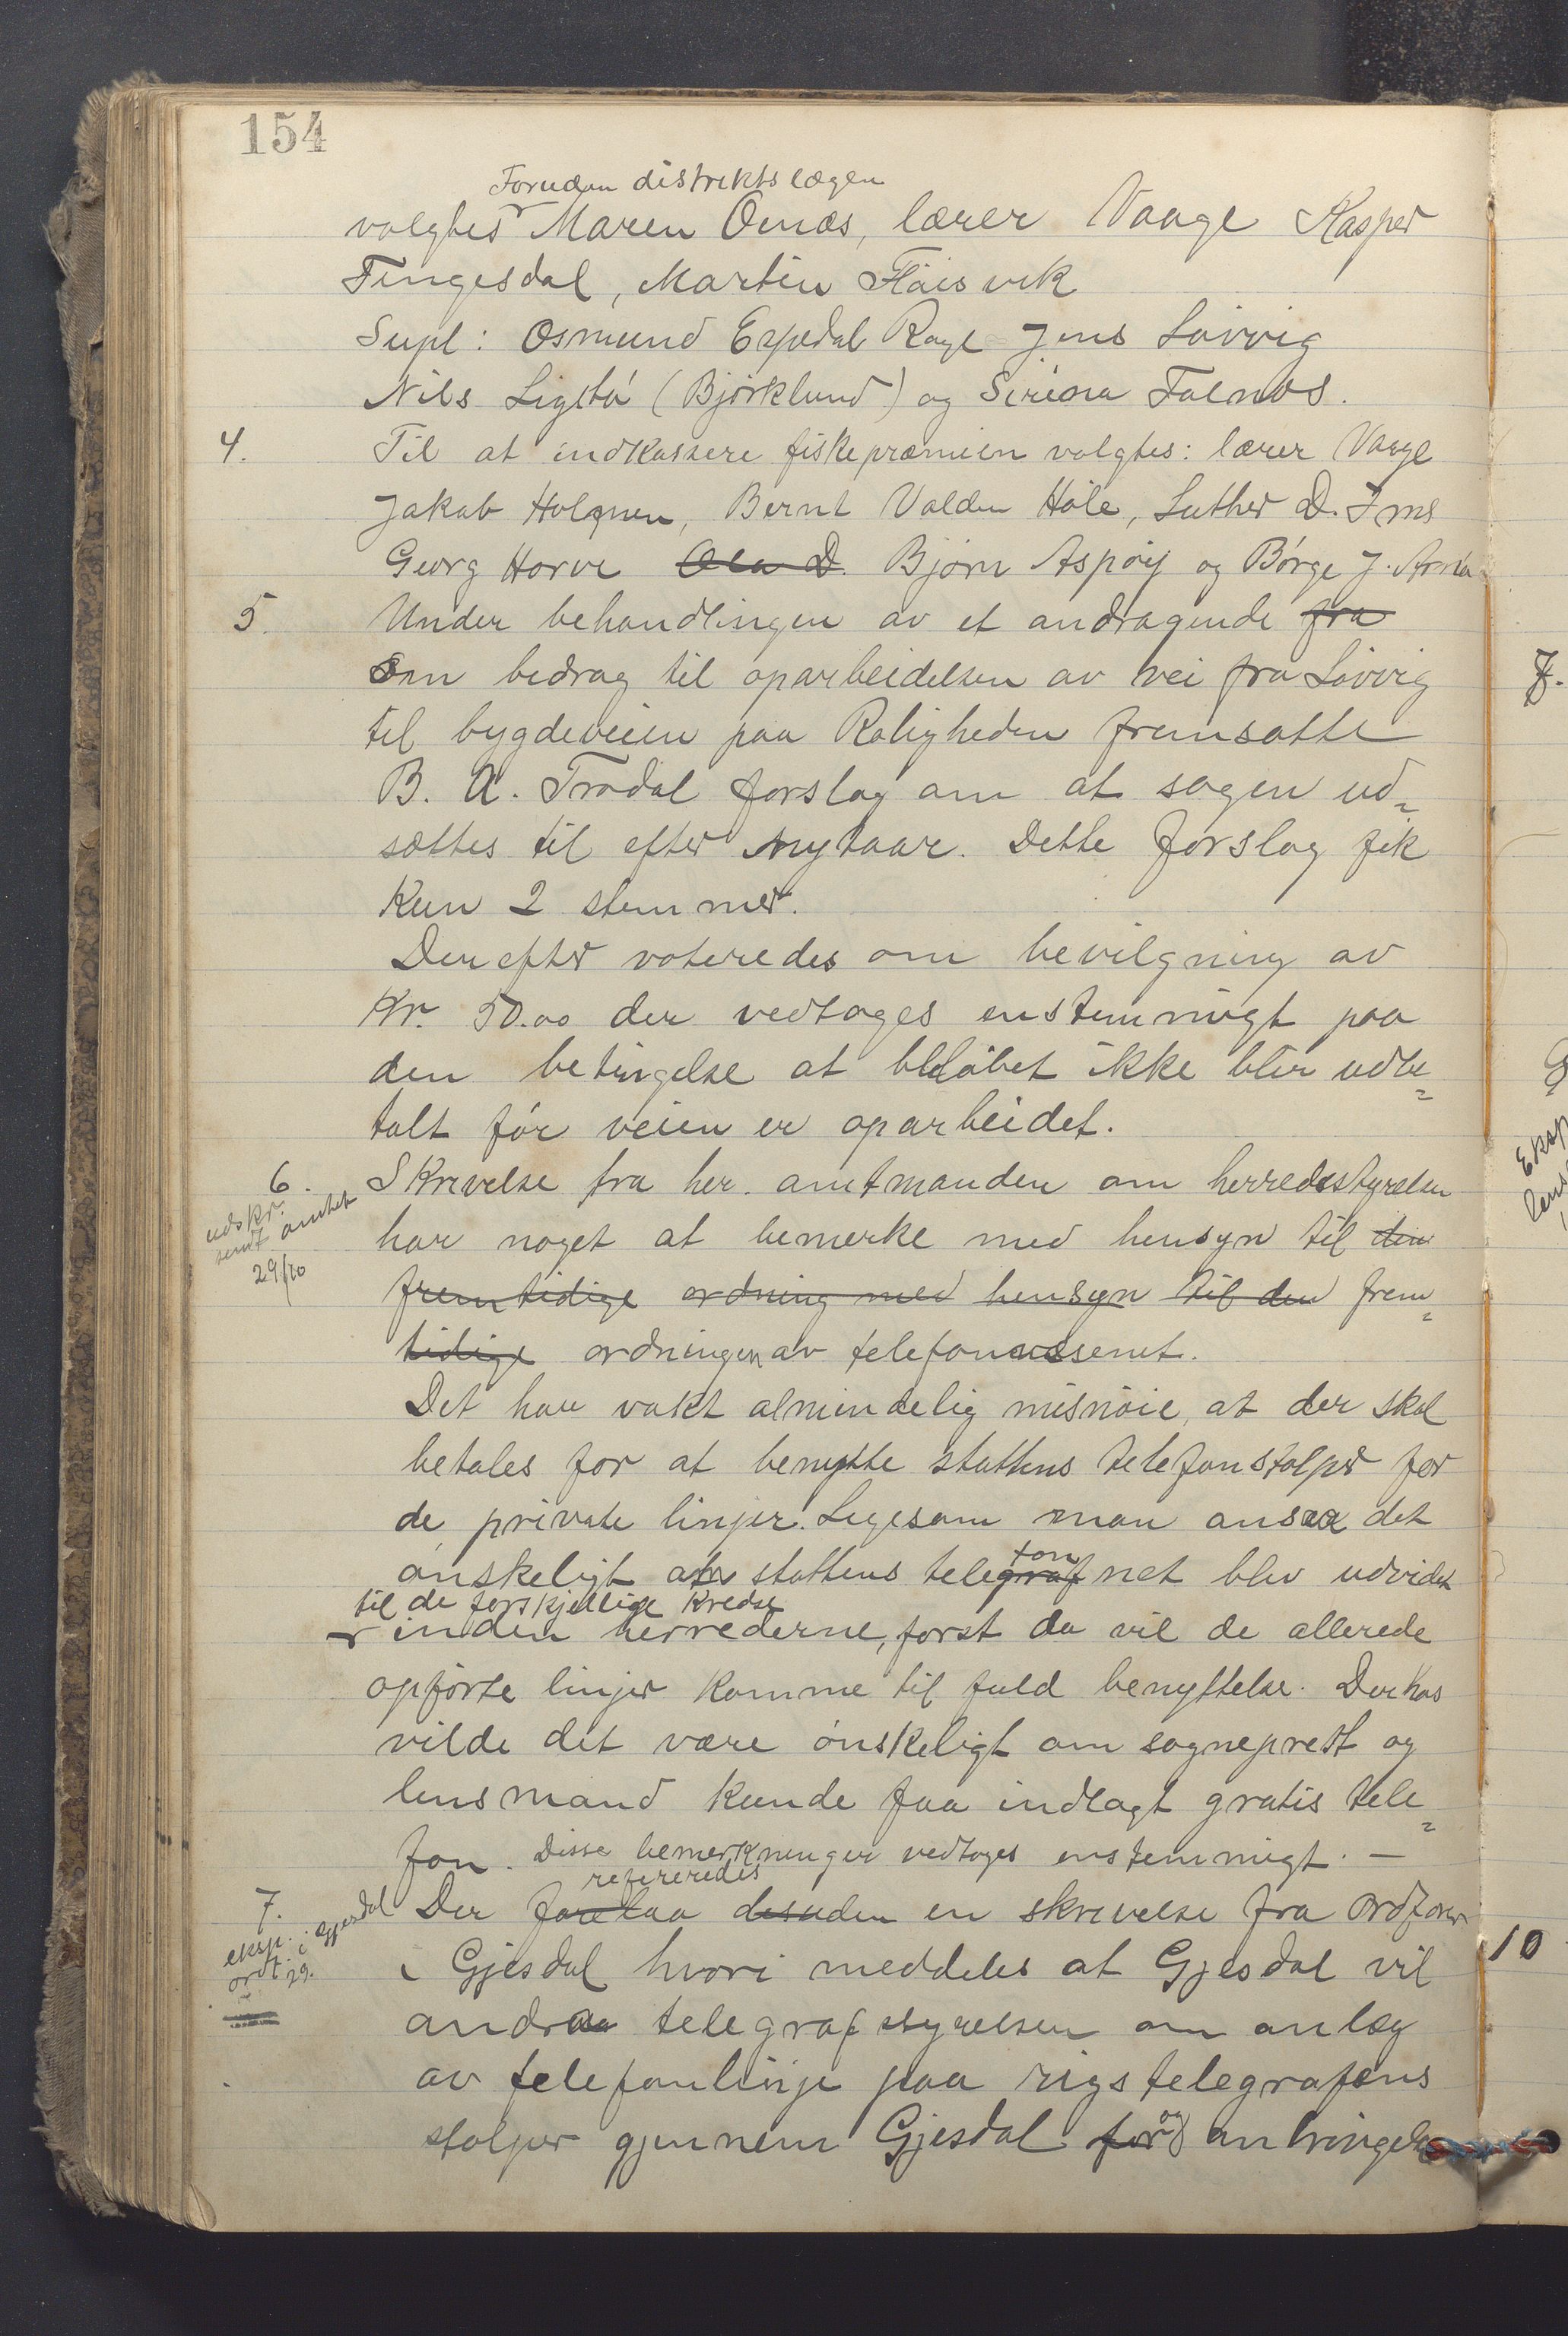 154
Foruden distriktslægen
valgtes Maren Osnæs, lærer Vaage Kasper
Tengesdal, Martin Fløisvik
Supl: Osmund Espedal Rage Jens Løvvig
Nils Ligstø (Bjørklund) og Serina Falnes.
4. Til at indkassere fiskepræmien valgtes: lærer Vaage
Jakab Holmen, Bernt Valden Høle, Luther D. Ims
Georg Horve Ola D. Bjørn Aspøy og Børge J.
5. Under behandlingen av et andragende fra
om bedrag til oparbeidelsen av vei fra Løvvig
til bygdeveien paa Roligheden fremsatte
B. A. Trødal forslag om at sagen ud-
sættes til efter nytaar. Dette forslag fik
kun 2 stemmer.
Derefter voteredes om bevilgning av
Kr. 50.00 der vedtoges enstemmigt paa
den betingelse at beløbet ikke blir udbe-
talt før veien er oparbeidet.
6. Skrivelse fra her. amtmanden om herredsstyrelsen
udskr.
sendt amtet
29/10
har noget at bemerke med hensyn til den
fremtidige ordning med hensyn til den frem-
tidige ordningen av telefonvæsenet.
Det har vakt almindelig misnøie, at der skal
betales for at benytte stattens telefonstolper for
de private linjer. Ligesom man ansaa det
ønskeligt at stattens telegraf fon net blev udvidet
til de forskjellige kredse
inden herrederne, først da vil de allerede
opførte linjer komme til fuld benyttelse. Derhos
vilde det være ønskeligt om sogneprest og
lensmand kunde faa indlagt gratis tele-
fon. Disse bemerkninger vedtoges enstemmigt. —
refereredes
7. Der forelaa desuden en skrivelse fra ordfører
eksp.
ordf. i Gjesdal
29.
i Gjesdal hvori meddeles at Gjesdal vil
andra telegrafstyrelsen om anlæg
av telefonlinje paa rigstelegrafens
stolper gjennem Gjesdal for og anbringelse
7.
Eksp
lens
10